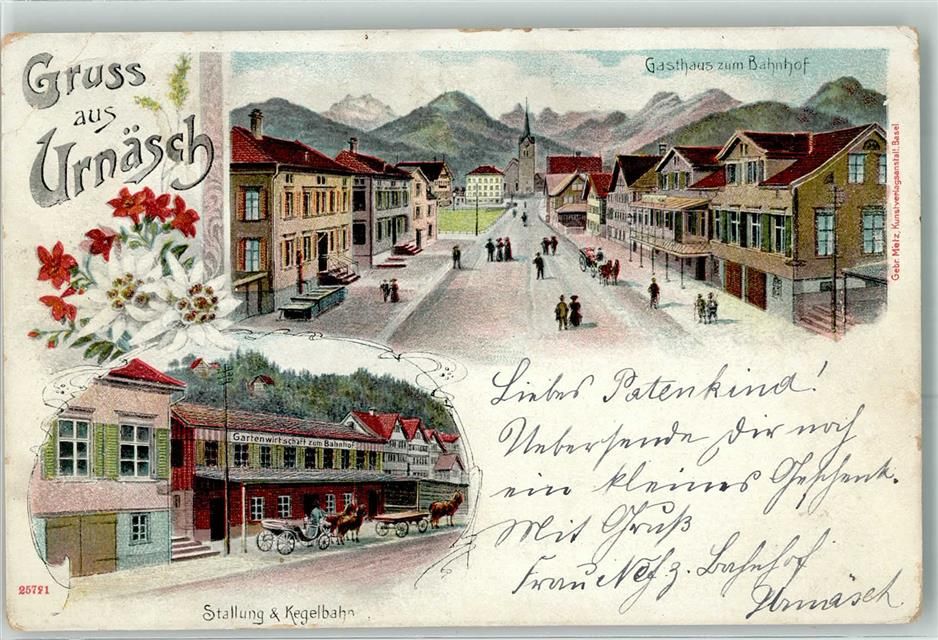 Gruss
aus
Urnäsch
Gasthaus zum Bahnhof
Gebr. Metz, Kunstverlagsanstalt, Basel
Gartenwirtschaft zum Bahnhof
Liebes Patenkind!
Uebersende Dir noch
ein kleines Geschenk.
Mit Gruß
Frau Nef z. Bahnhof
Urnäsch
25721
Stallung & Kegelbahn